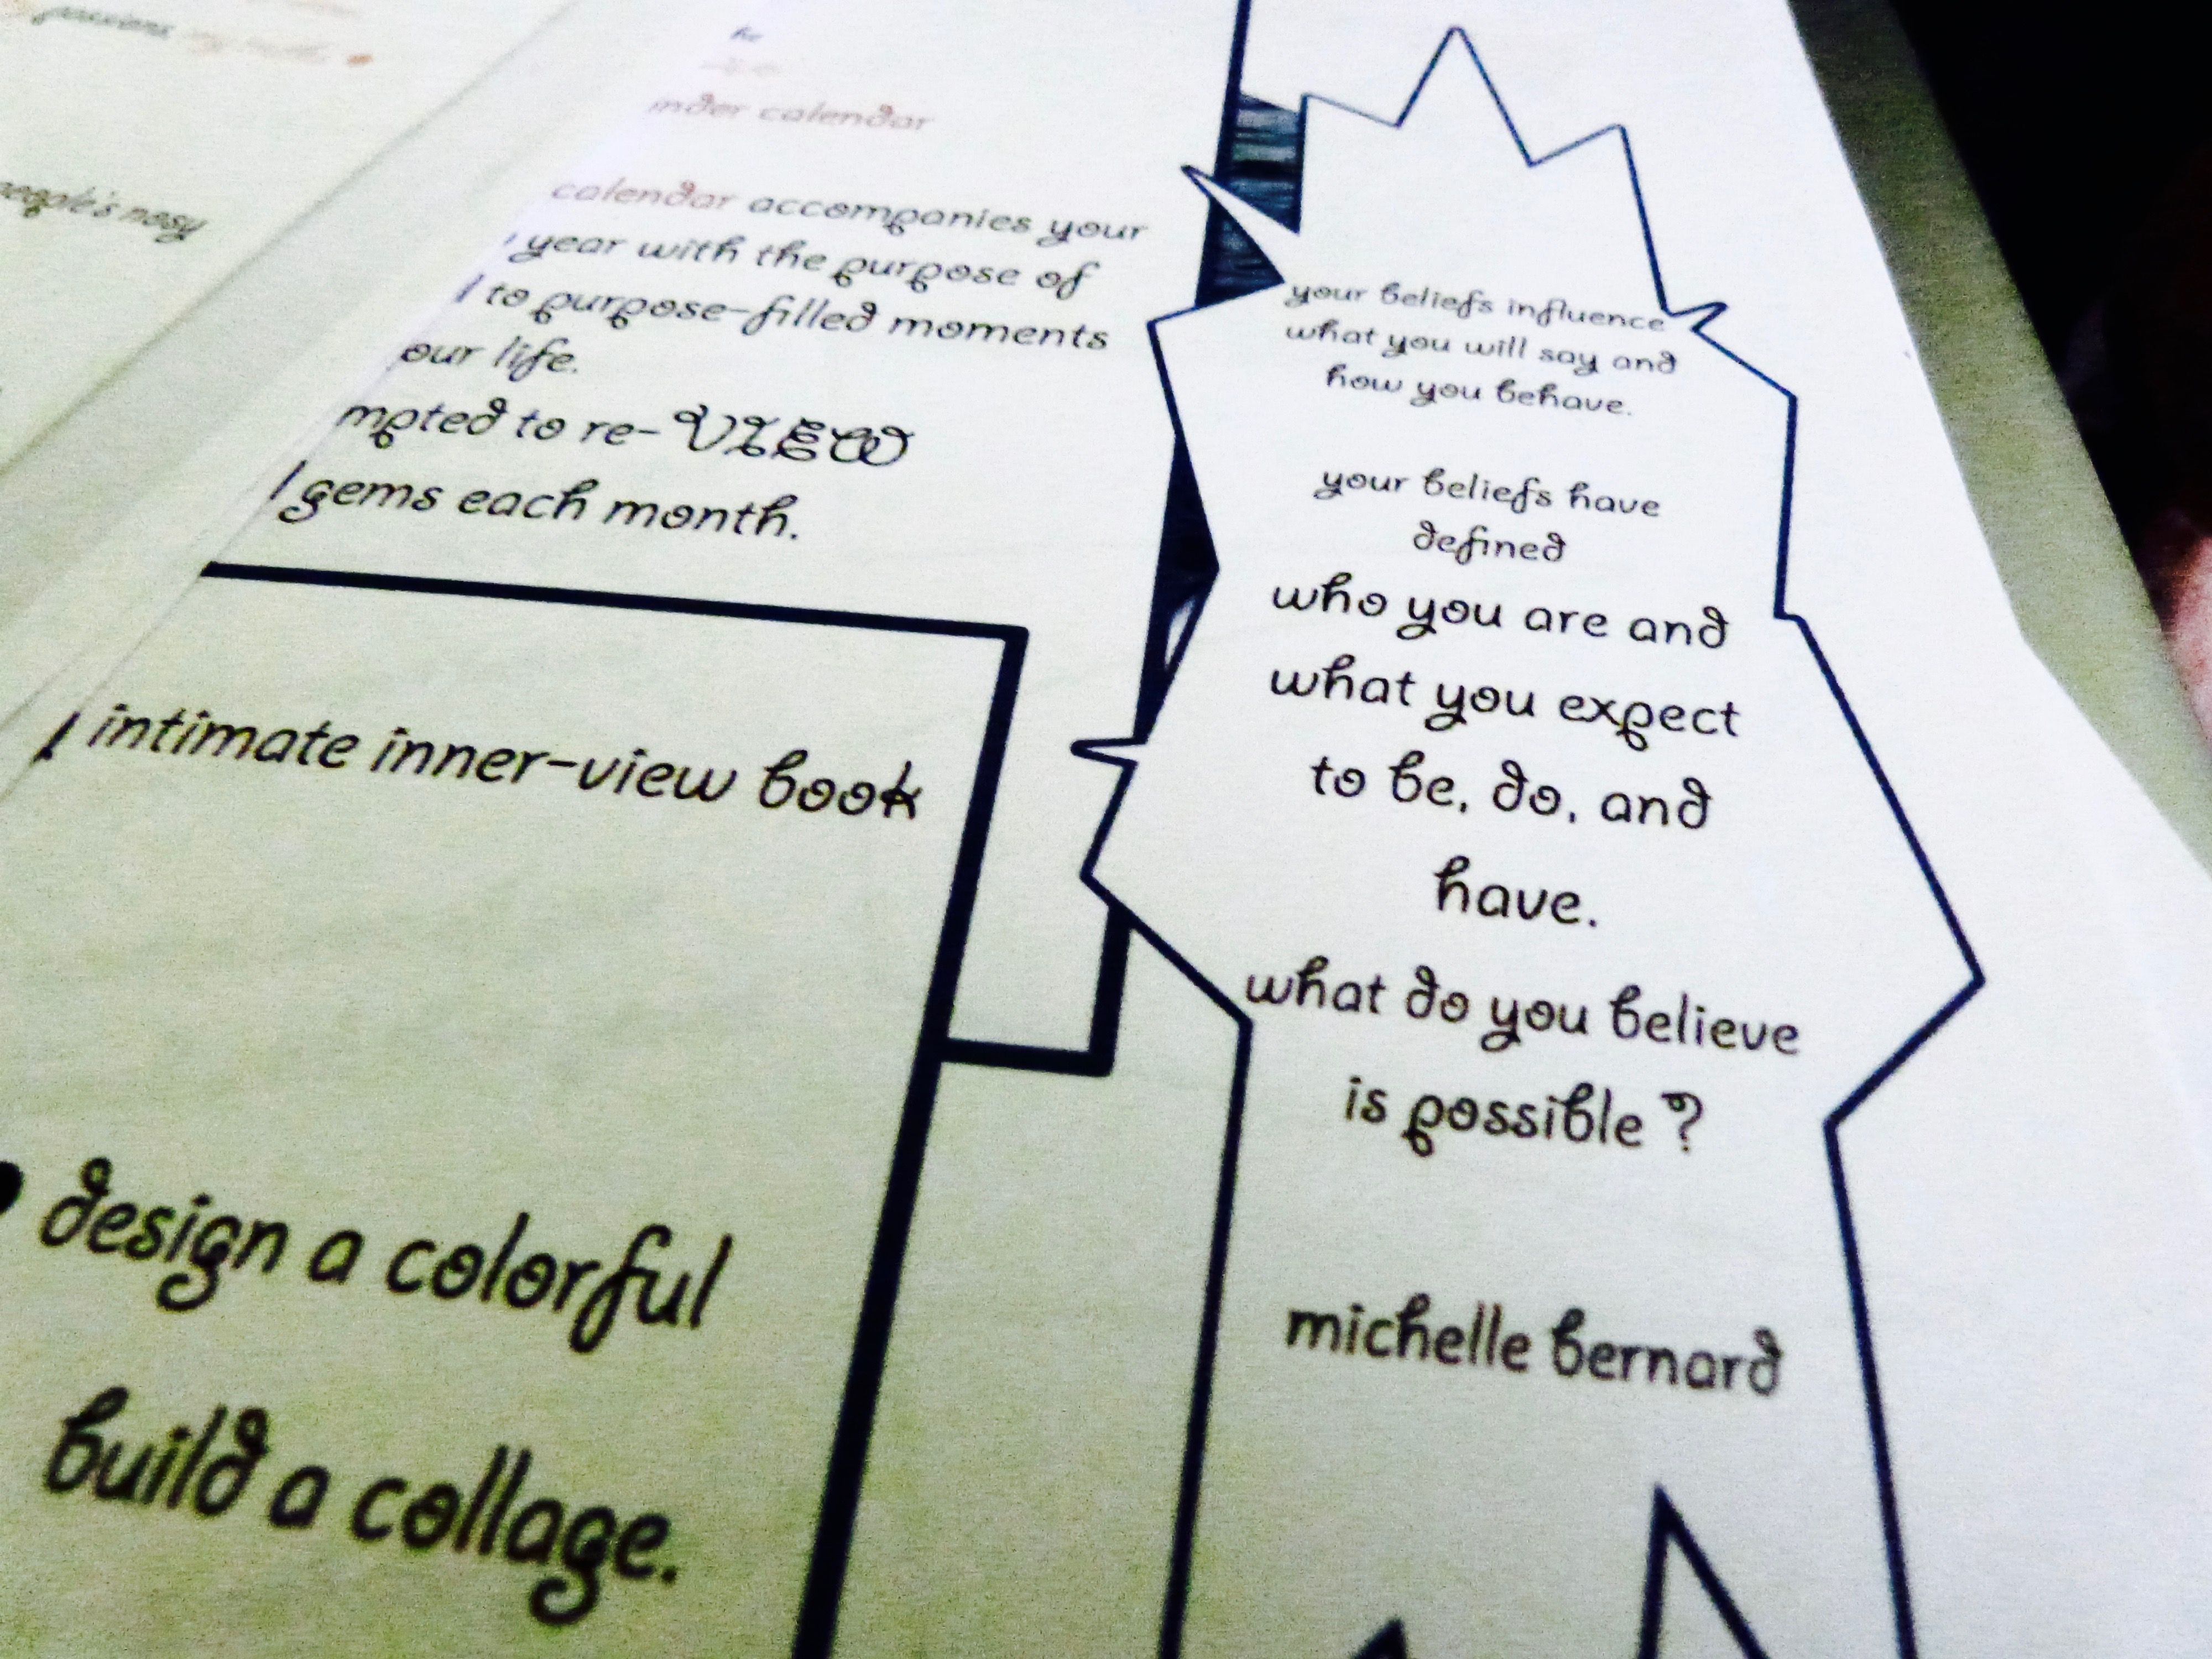 people's nosy
inder calendar
calendar accompanies your
year with the purpose of
to purpose-filled moments
our life.
mpted to re-VIEW
gems each month.
intimate inner-view book
design a colorful
build a collage.
your beliefs influence
what you will say and
how you behave.
your beliefs have
defined
who you are and
what you expect
to be, do, and
have.
what do you believe
is possible?
michelle bernard